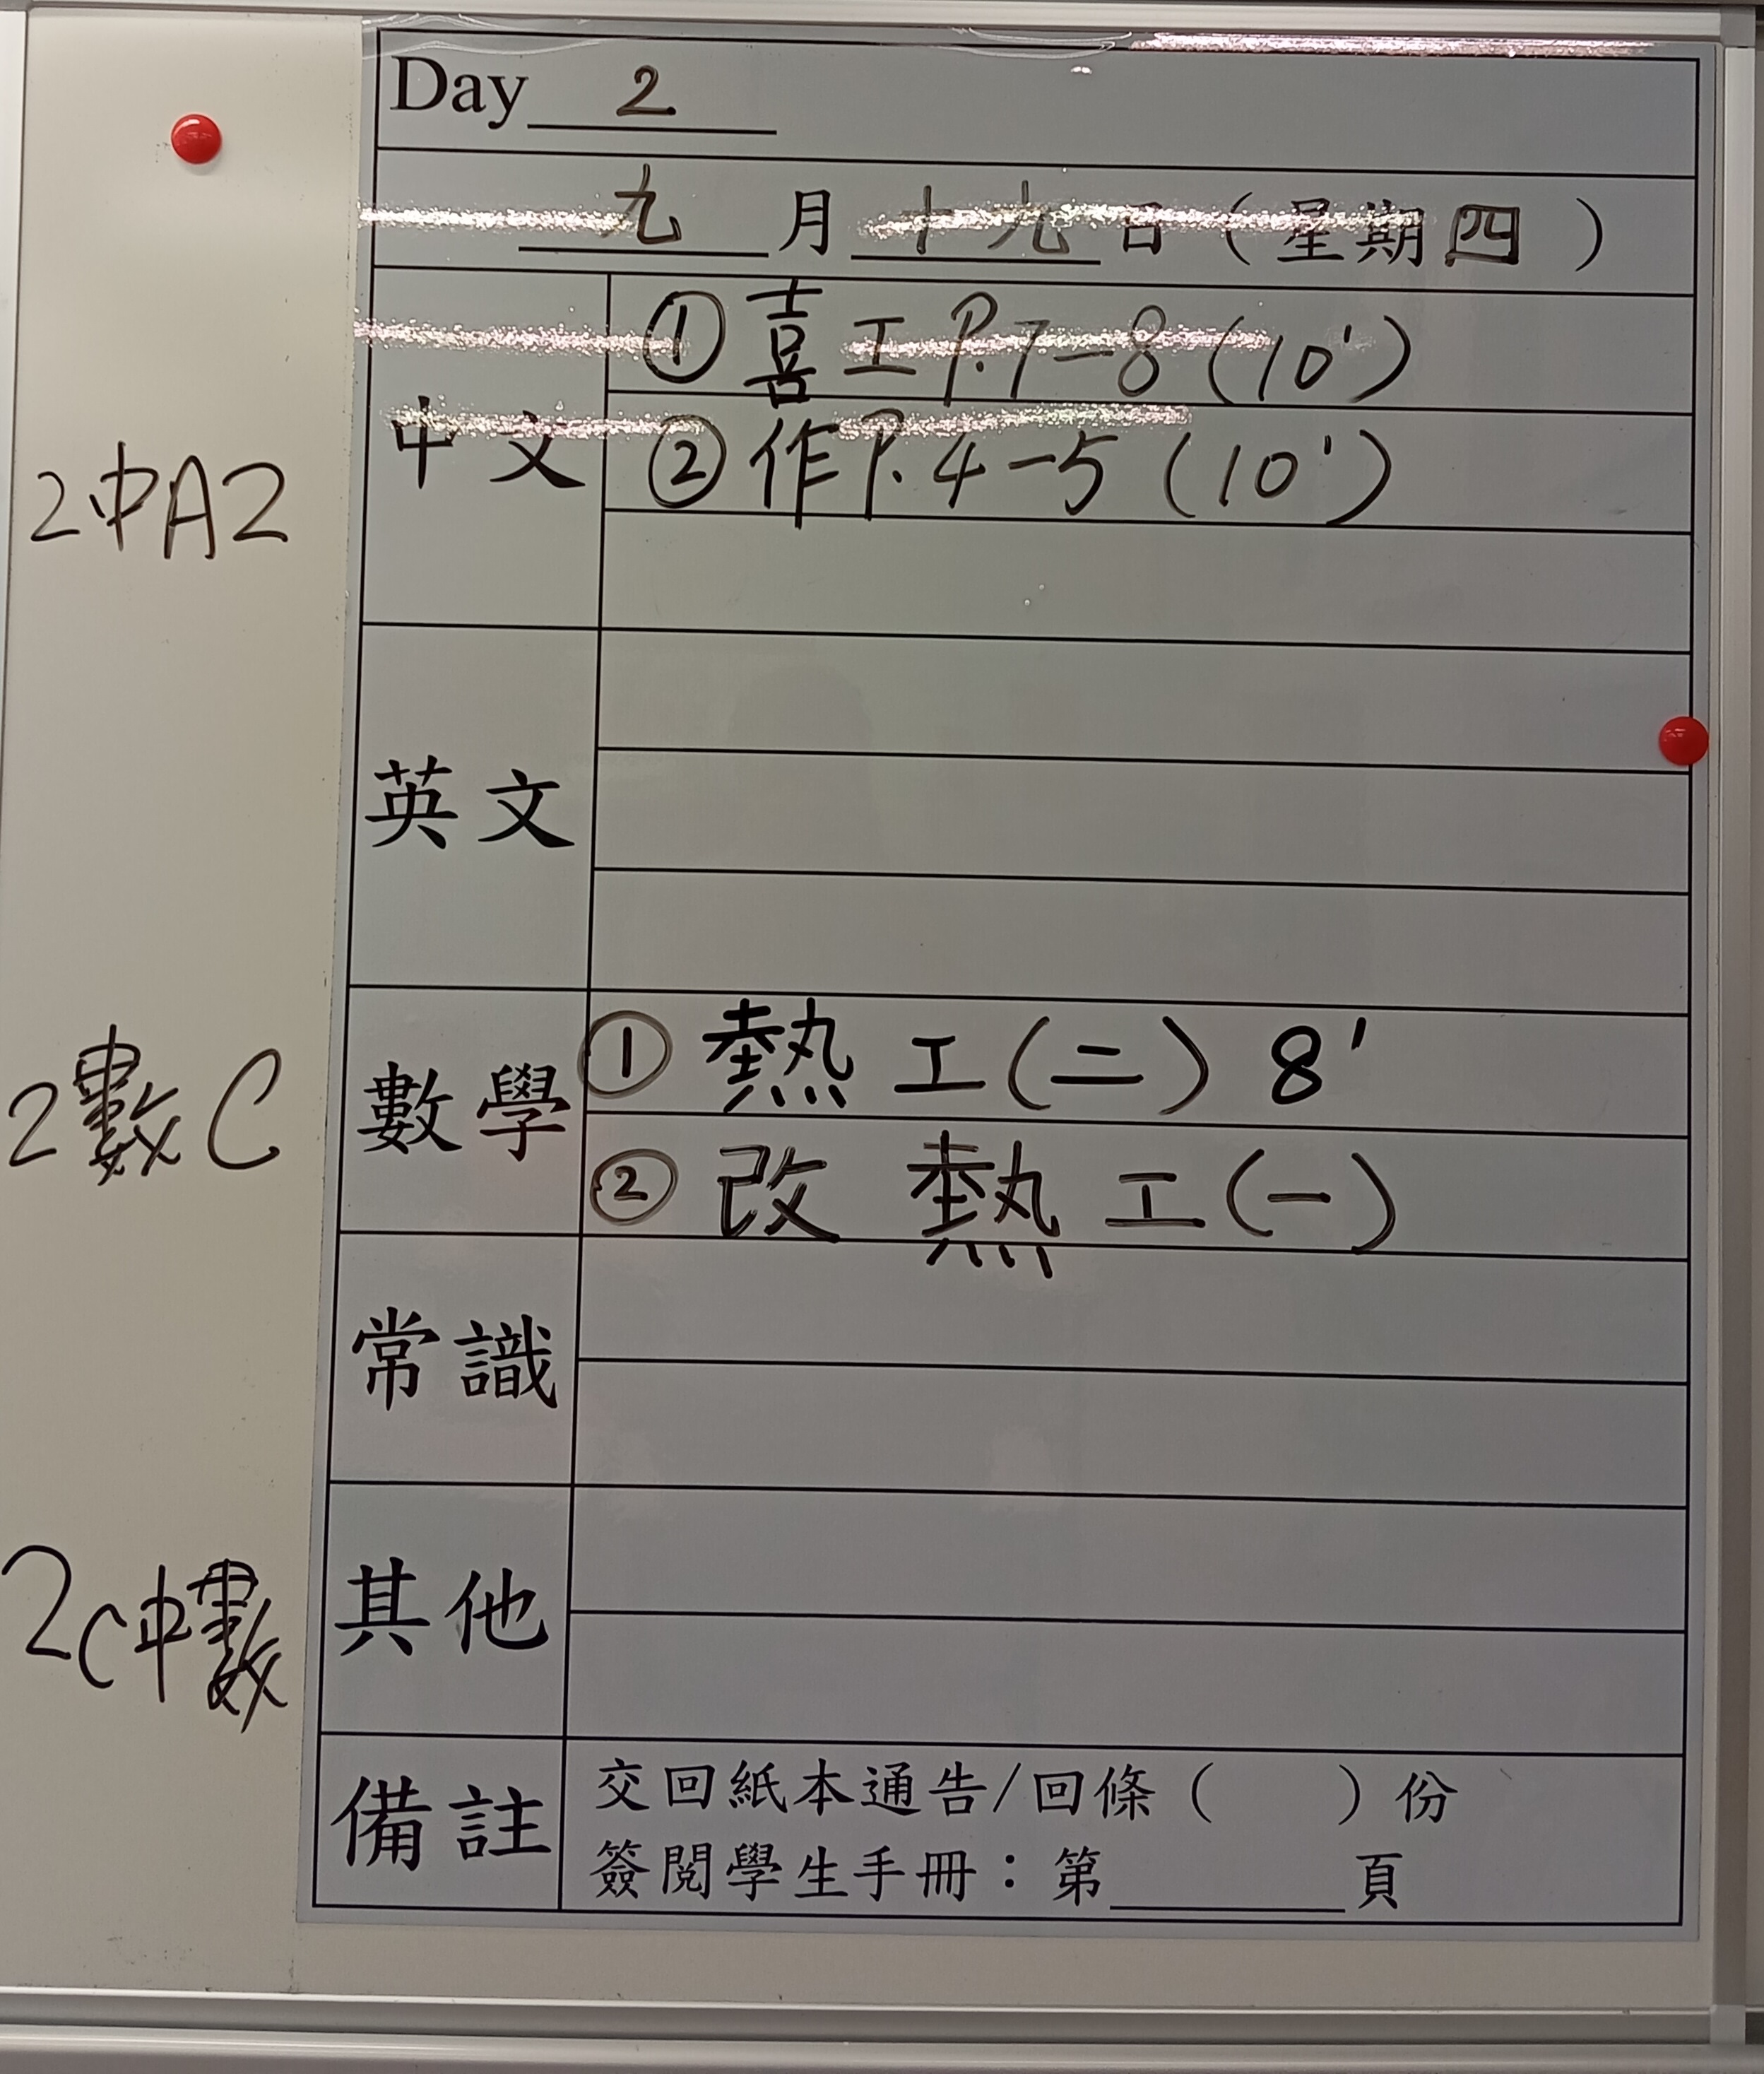 Day 2
九 月 十九 日 ( 星期 四 )
中文
① 喜工 P.7-8 (10')
② 作 P.4-5 (10')
2中A2
英文
數學
① 熱工(二) 8'
② 改 熱工(一)
2數C
常識
其他
2C中數
備註
交回紙本通告/回條 ( ) 份
簽閱學生手冊：第______頁